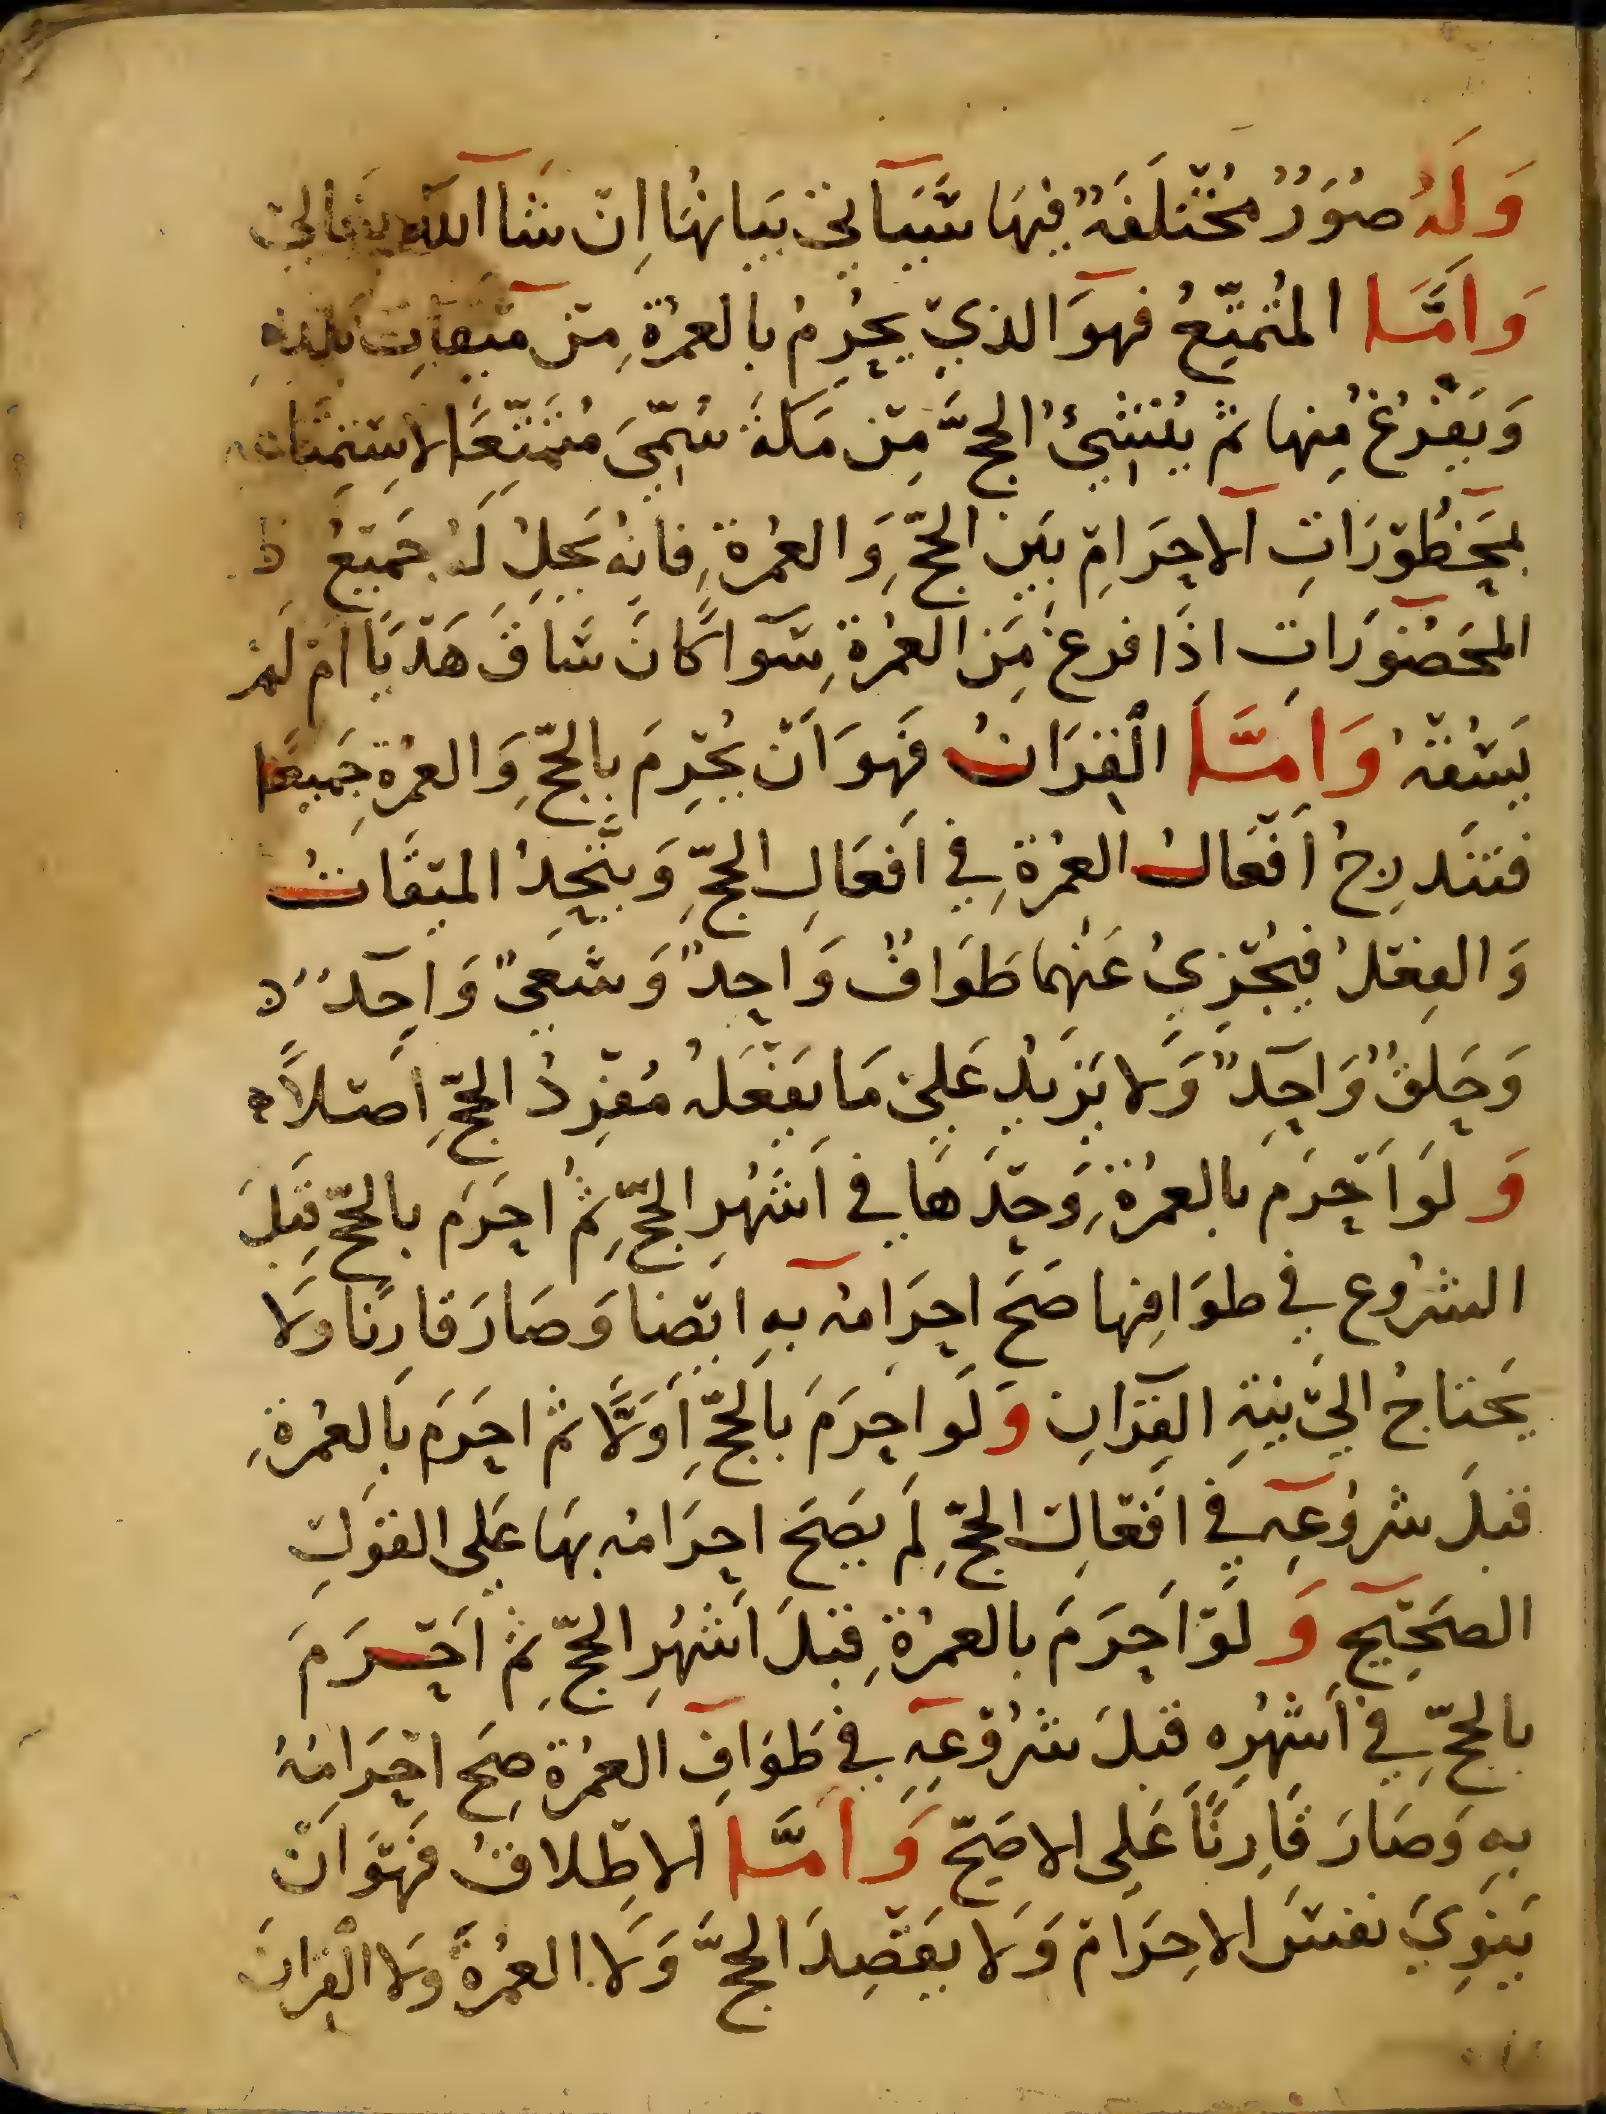 وَلَهُ صُوَرٌ مُخْتَلَفَةٌ فِيهَا سَيَأتي بَيَانهُا اِنْ شَآ اللّه تعَالىْ
وَاَمَّا المُتمتِّعُ فهوَ الذيْ يحْرِمُ بالعمُرةِ مِنْ مِيْقاتِ بَلدهِ
وَيَفْرُغُ مِنها ثمْ يُنْشِئُ الحجَّ مِنْ مَكةَ سُمّيَ مُتمَتِّعًا لاسِتمْتَاعه
بمَحْظُوْرَاتِ الاحرَامِ بَينَ الحجّ وَالعمُرةِ فانهُ يَحِلُ لَهُ جَميْعُ
المحَضوَرَاتِ اذَا فرغ مِنَ العمُرةِ سَوا كَانَ سَاقَ هَدْيًا امْ لَمْ
يَسُقْهُ وَامَّا الْقِرَانُ فَهوَ اَنْ يُحْرِمَ بالحجّ وَالعمرُةِ جَميعًا
فتَندرِجُ اَفْعَالُ العمُرةِ في اَفعَالِ الحجِّ وَيتَّحِدُ الميْقَاتُ
وَالفِعْلُ فيُجْزِيُ عَنهُما طَوَافٌ وَاحِدٌ وَسَعيٌ وَاحِدٌ
وَحَلقٌ وَاحِدٌ وَلا يَزيْدُ عَليْ مَا يَفْعَلهُ مُفْرِدُ الحجِّ اَصْلاً
وَلَو اَحْرَمَ بالعمُرةِ وَحْدَهَا في اَشهُرِ الحجِّ ثمُ احرَمَ بالحجّ قبَلَ
الشرُوع في طوَافِها صَحَ احرَامهُ بهِ ايْضا وَصَارَ قارِنًا وَلا
يَحتاجُ اليْ نيَةِ القِرَانِ وَلَو احرَمَ بالحَجّ اَوَلاً ثم احرَمَ بالعمُرةِ
قبلَ شروُعَهِ في افْعَالِ الحجِّ لَم يصَحَ احرَامهُ بهَا عَلى القوَلِ
الصَحِيْحِ وَلَوْ اَحرَمَ بالعمُرةِ قبلَ اَشهُرِ الحجّ ثمْ اَحْرَمَ
بالحجِّ في اَشهُرِه قبلَ شرُوْعهِ في طَوَافِ العمُرةِ صِحَ احْرَامُهُ
بهِ وَصَارَ قَارِنًا عَلى الاصَحّ وَامَّا الاطِلاقُ فَهْوَ انْ
يَنوِيَ نفسَ الاحِرَامْ وَلا يَقْصِدَ الحجَّ وَلَا العمُرةَ وَلا القِرانَ